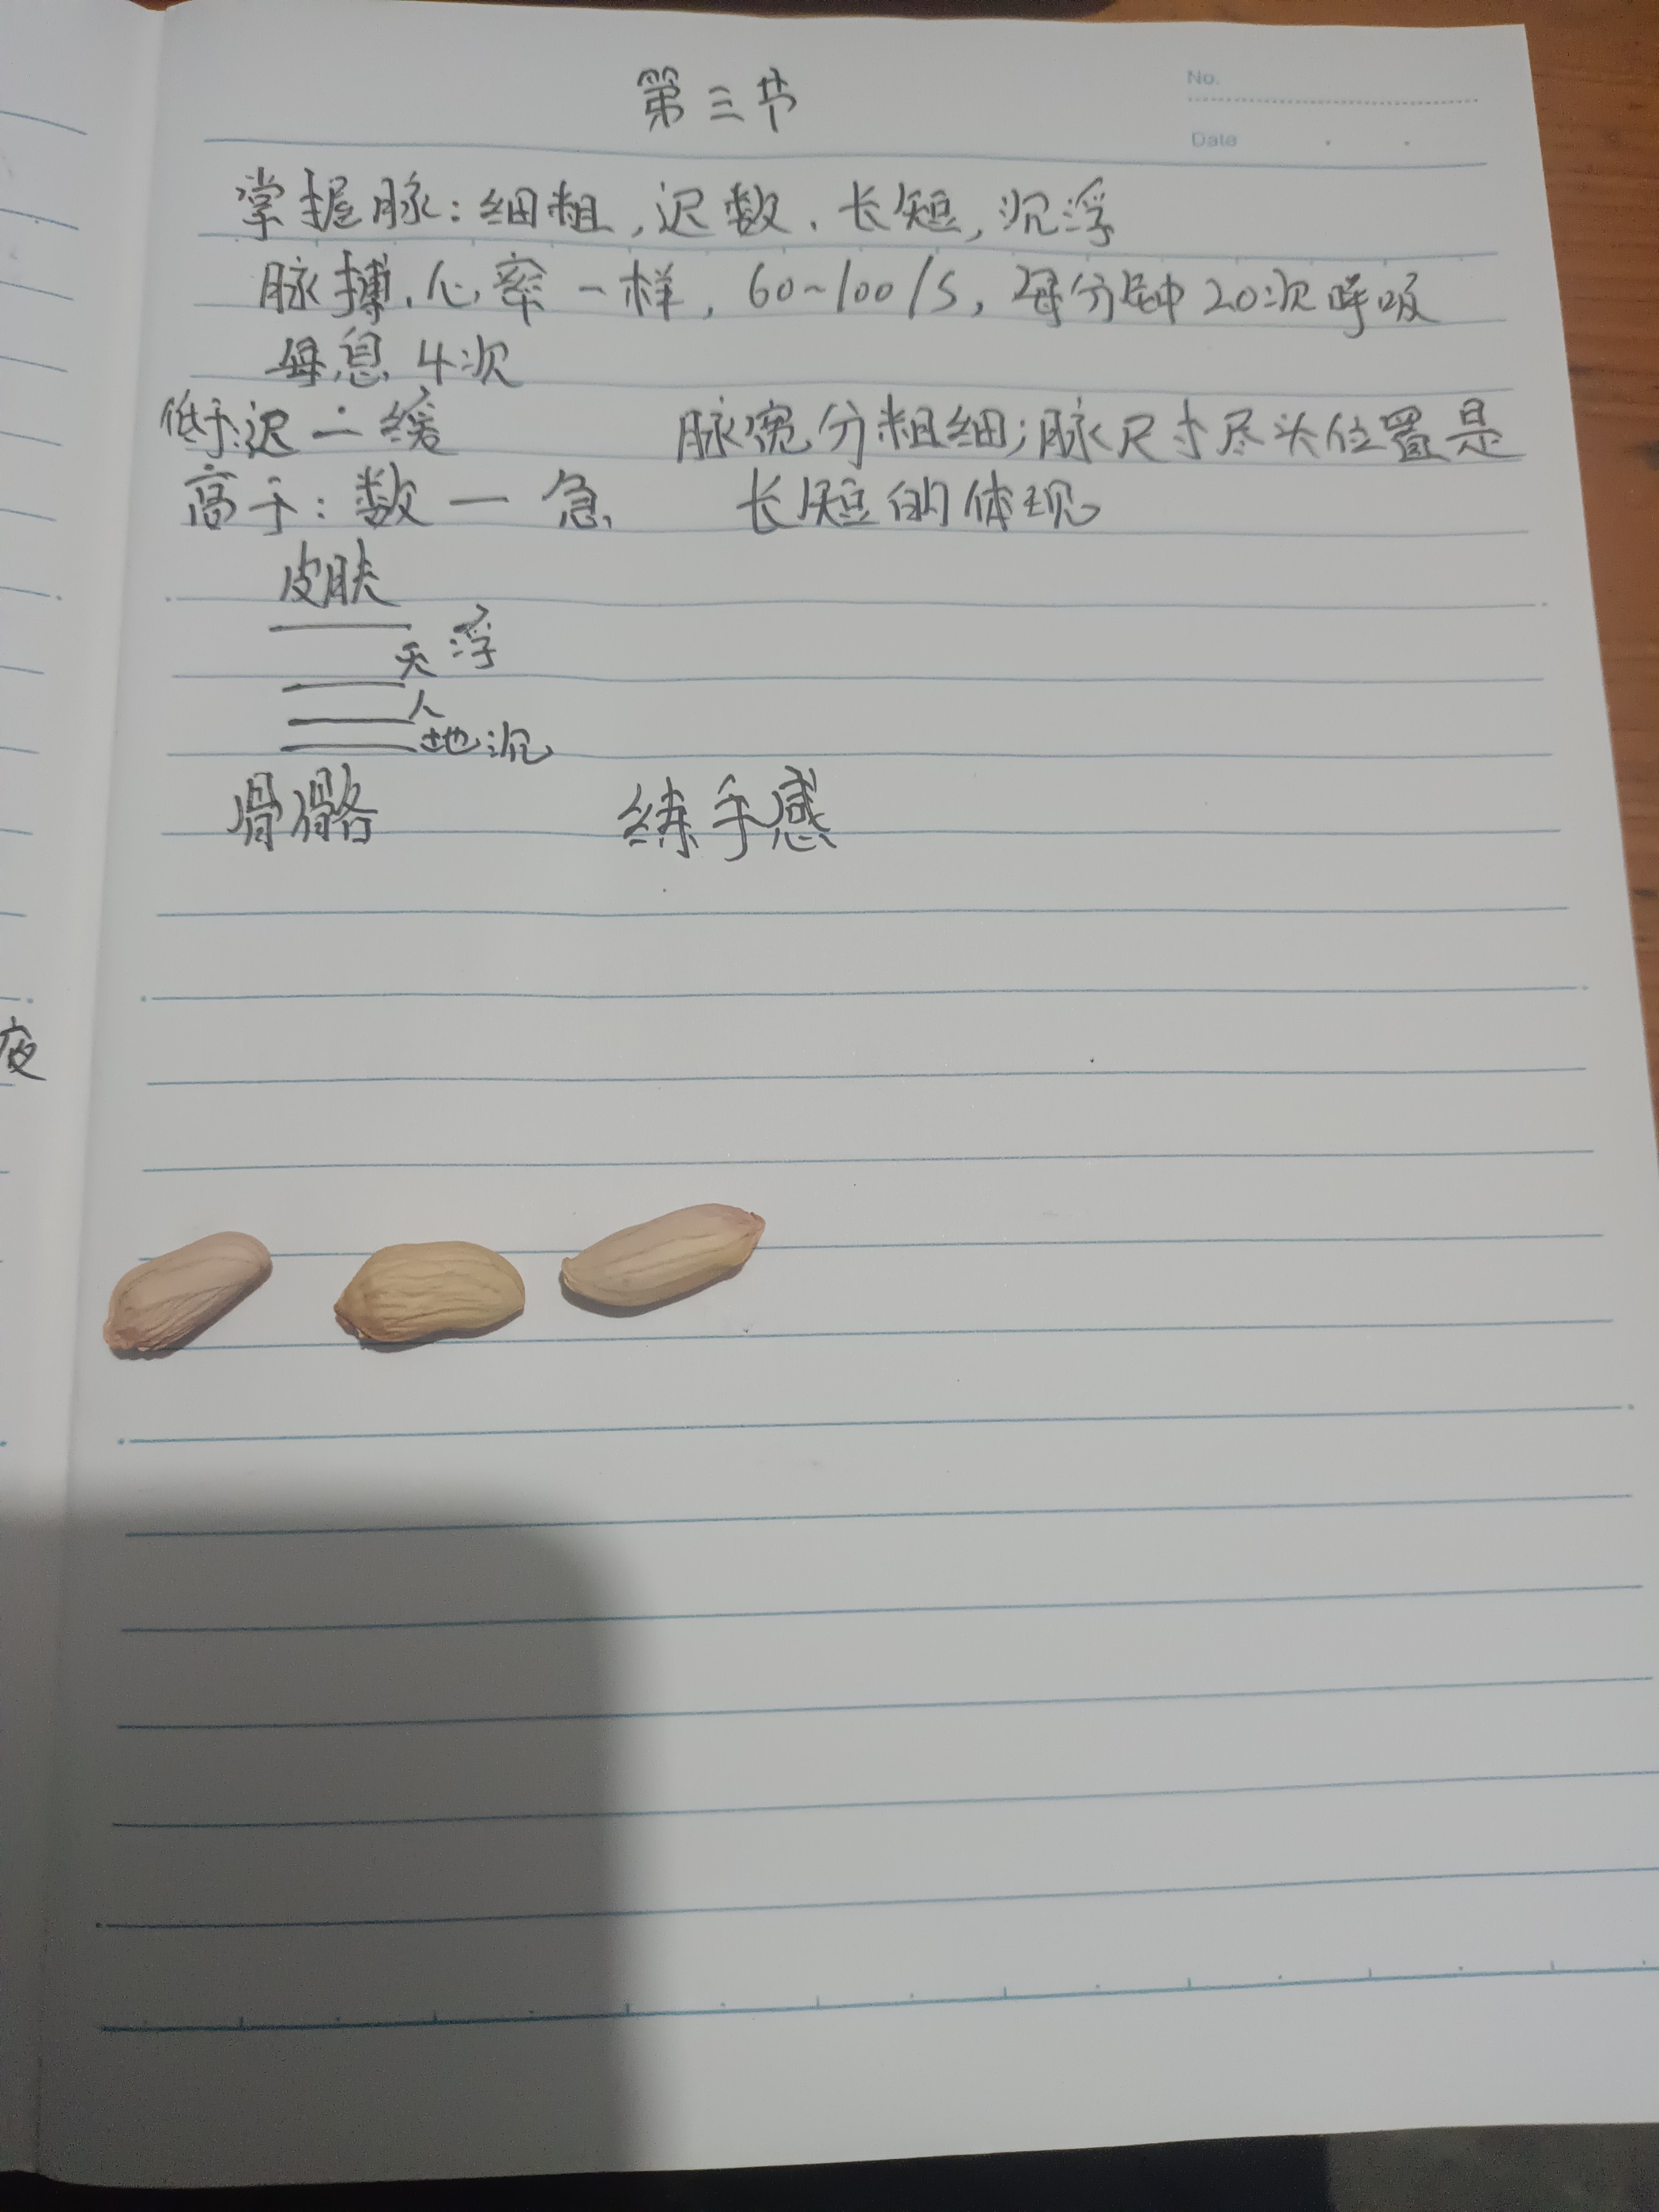 第三节
No.
Date
掌握脉:细粗,迟数、长短,沉浮
脉搏、心率一样,60~100/S,每分钟20次呼吸
每息4次
低于:迟一缓
脉宽分粗细;脉尺寸尽头位置是
高于:数一急
长短的体现。
皮肤
天 浮
人
地 沉
骨骼
练手感
夜